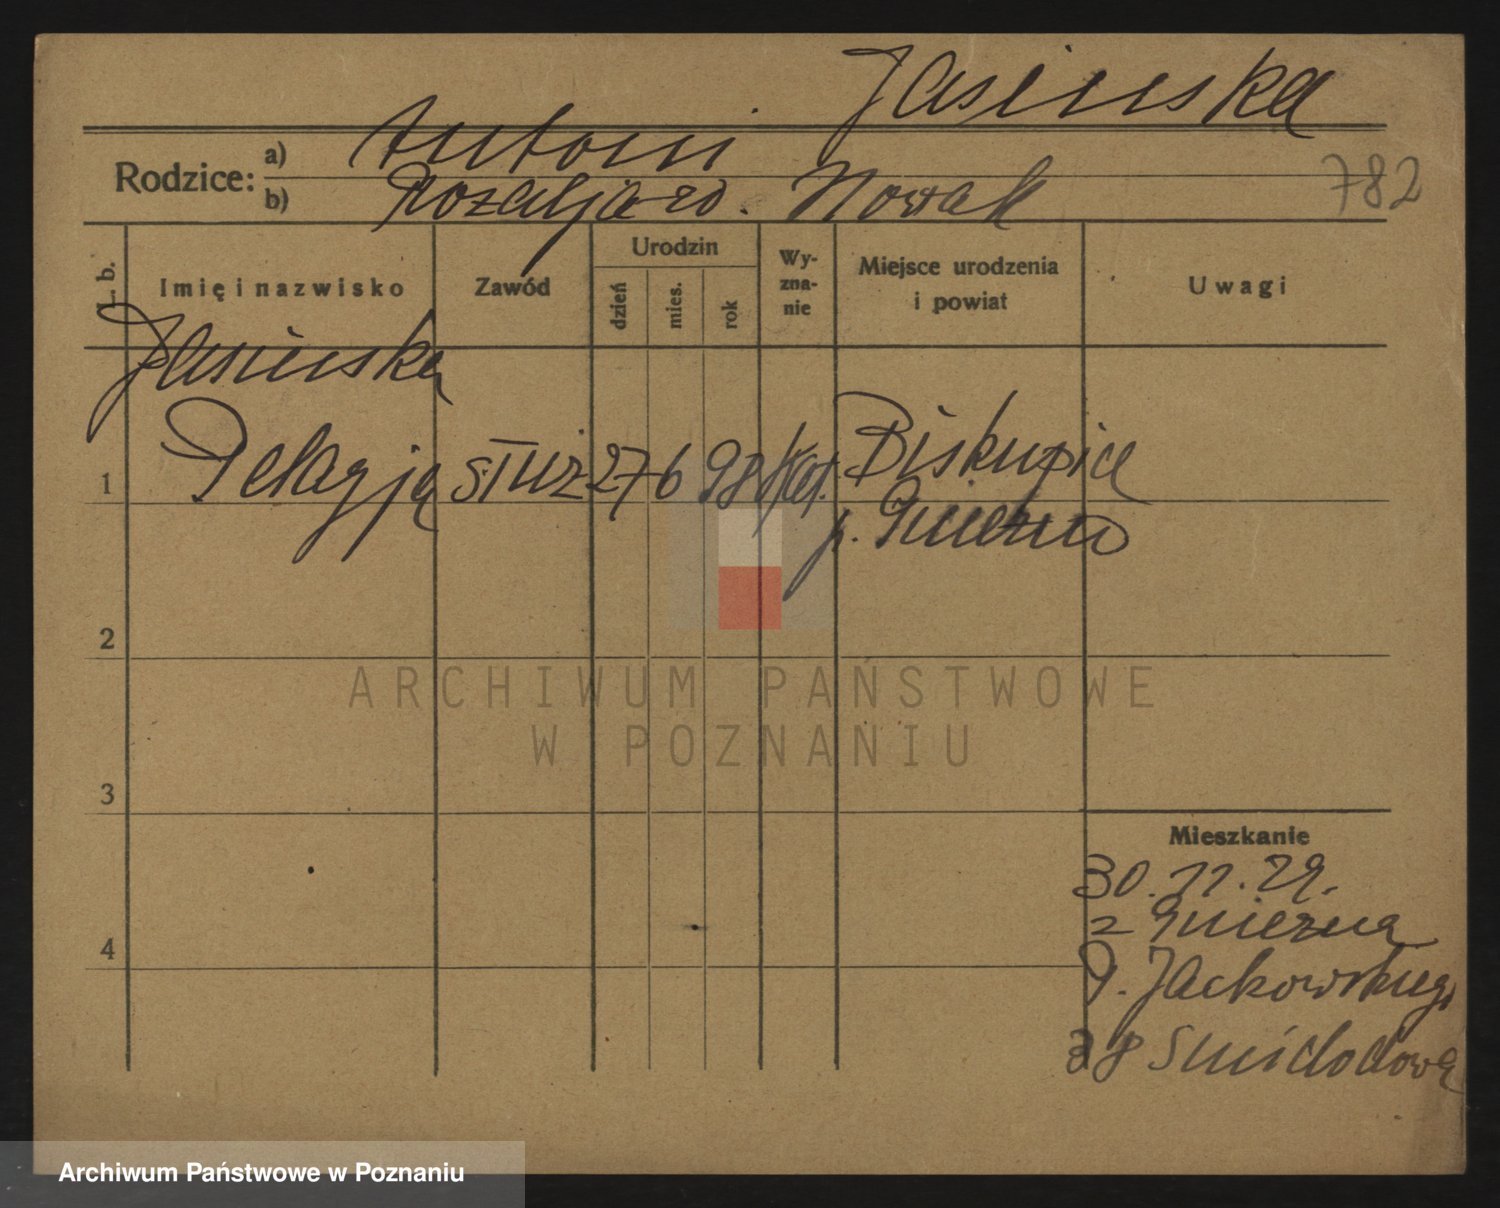 Jasinska
Rodzice: a) Antoni
b) Rozalja rd. Nowak
782
L. b.
Imię i nazwisko
Zawód
Urodzin
dzień
mies.
rok
Wy-
zna-
nie
Miejsce urodzenia
i powiat
Uwagi
Jasinska
1 Pelagja służ 27 6 98 kat. Biskupice
p. Gniezno
2
3
4
Mieszkanie
30.11.29.
z Gniezna
P. Jackowskiego
38 Smidodowa
ARCHIWUM PAŃSTWOWE
W POZNANIU
Archiwum Państwowe w Poznaniu